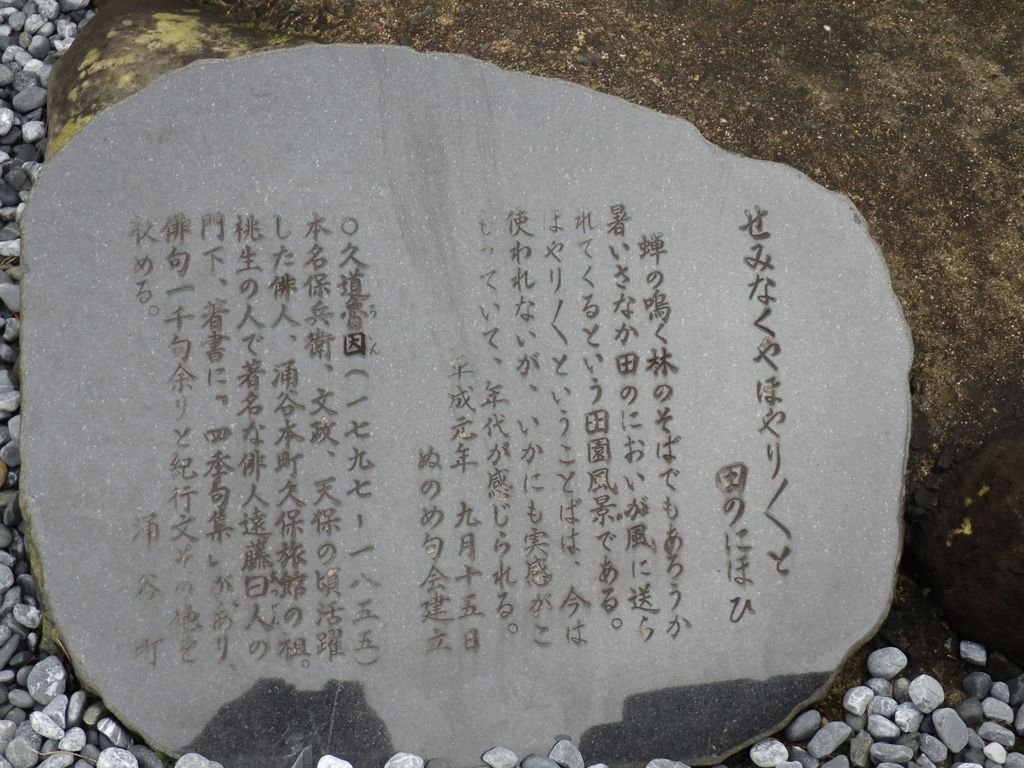 せみなくやほやり〱と
田のにほひ
蝉の鳴く林のそばでもあろうか
暑いさなか田のにおいが風に送ら
れてくるという田園風景である。
ほやり〱ということばは、今は
使われないが、いかにも実感がこ
もっていて、年代が感じられる。
平成元年 九月十五日
ぬのめ句会建立
○久道雷因(一七九七ー一八五五)
うん
本名保兵衛、文政、天保の頃活躍
した俳人、涌谷本町久保旅館の祖。
桃生の人で著名な俳人遠藤曰人の
門下、著書に「四季句集」があり、
俳句一千句余りと紀行文その他を
収める。
涌谷町